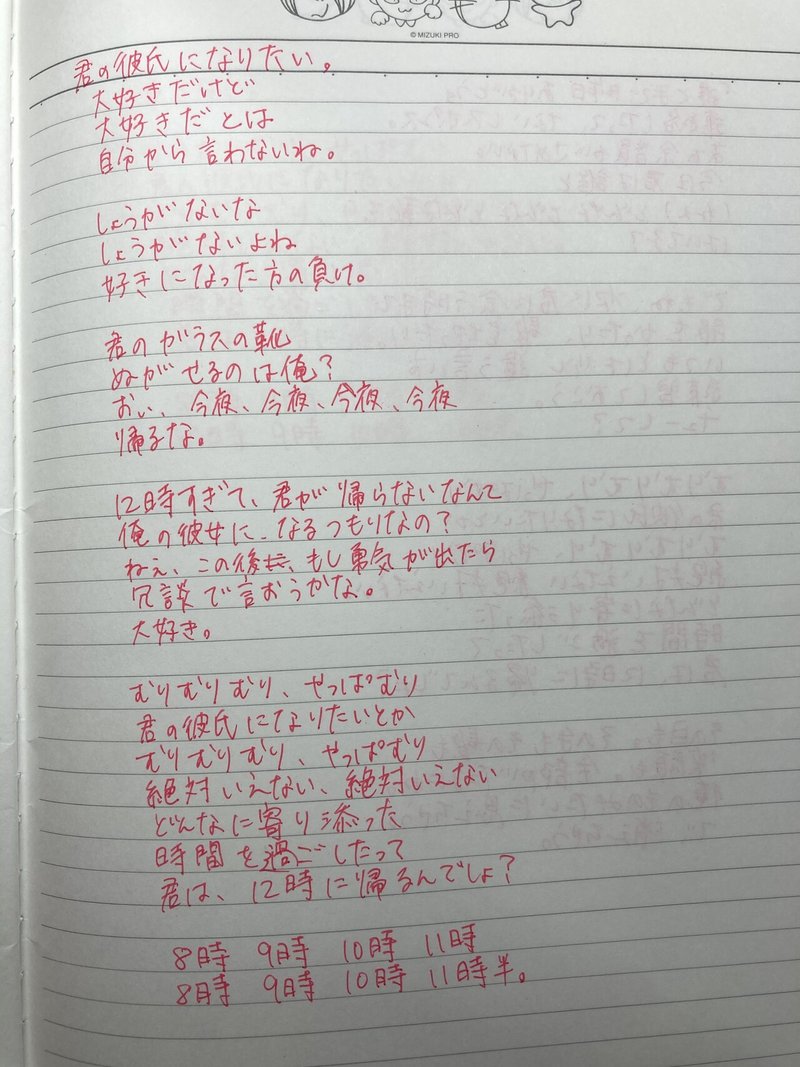 © MIZUKI PRO
君の彼氏になりたい。
大好きだけど
大好きだとは
自分から言わないね。
しょうがないな
しょうがないよね
好きになった方の負け。
君のガラスの靴
ぬがせるのは俺?
おい、今夜、今夜、今夜、今夜
帰るな。
12時すぎて、君が帰らないなんて
俺の彼女になるつもりなの?
ねぇ、この後、もし勇気が出たら
冗談で言おうかな。
大好き。
むりむりむり、やっぱむり
君の彼氏になりたいとか
むりむりむり、やっぱむり
絶対いえない、絶対いえない
どんなに寄り添った
時間を過ごしたって
君は、12時に帰るんでしょ?
8時 9時 10時 11時
8時 9時 10時 11時半。